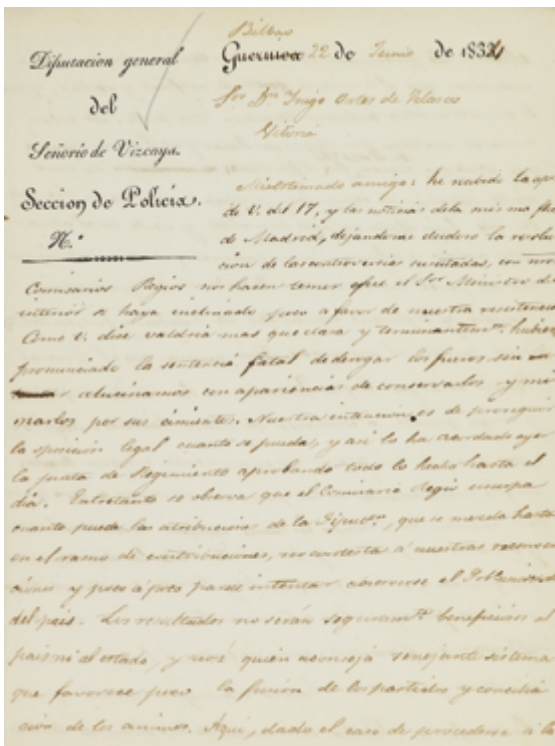 Diputacion general
del
Señorio de Vizcaya.
Seccion de Policía.
N.º
Bilbao
Guernica 22 de Junio de 1834
Sor Dn Iñigo Ortes de Velasco
Vitoria
Mi estimado amigo: he recibido la
de V. del 17, y las noticias de la misma
de Madrid, dejandonos dudoso la resolu-
cion de las controversias suscitadas, con
Comisarios Regios nos hacen temer que el Sor Ministro
interior se haya inclinado poco a favor de nuestra resistencia
Como V. dice valdria mas que clara y terminantemte
pronunciado la sentencia fatal de derogar los fueros sin
alucinarnos con apariencias de conservarlos y
por sus cimientos. Nuestra intencion es de proseguir
la oposicion legal cuanto se pueda, y asi lo ha acordado ayer
la junta de Regimiento aprobando todo lo hecho hasta el
dia. Entretanto se observa que el Comisario Regio usurpa
cuanto puede las atribuciones de la Diputon, que se mezcla hasta
en el ramo de contribuciones, no contesta á nuestras reconven
ciones y poco á poco parece intentar el
del pais. Los resultados no serán seguramte beneficiosos al
pais ni al estado, y no sé quién aconseja semejante sistema
que favorece poco la fusion de los partidos y concilia
cion de los animos. Aqui, dado el caso de procederse á la